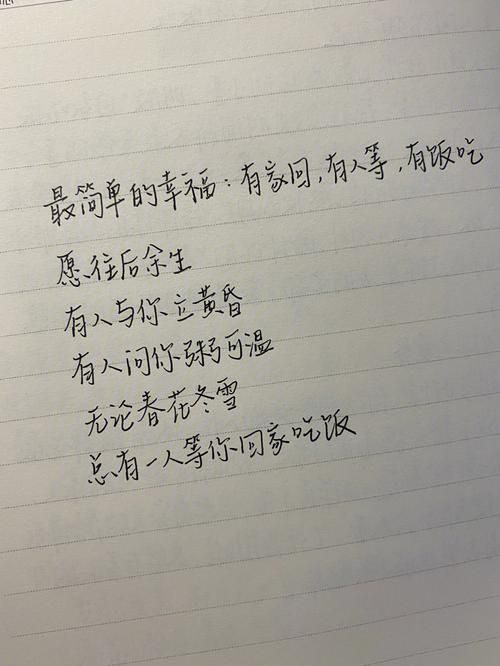 最简单的幸福：有家回，有人等，有饭吃
愿往后余生
有人与你立黄昏
有人问你粥可温
无论春花冬雪
总有一人等你回家吃饭